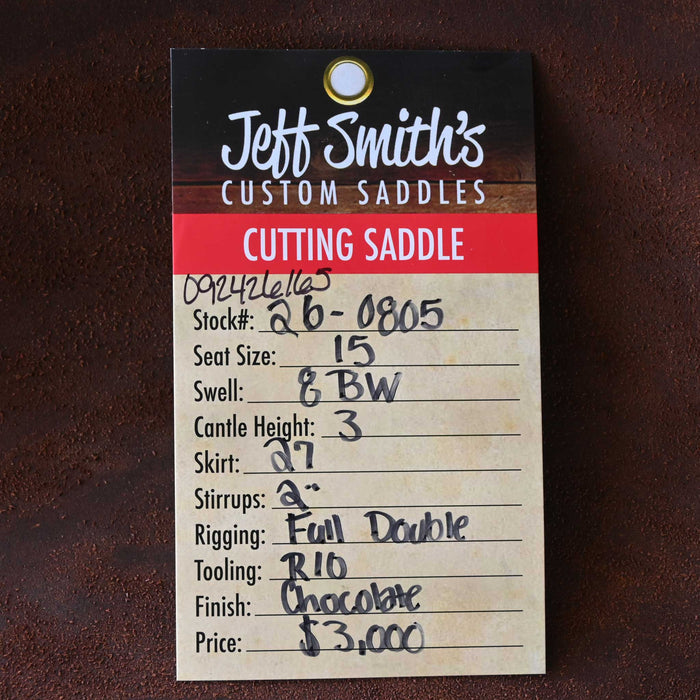 Jeff Smith's
CUSTOM SADDLES
CUTTING SADDLE
0924261165
Stock#: 26-0805
Seat Size: 15
Swell: 8 BW
Cantle Height: 3
Skirt: 27
Stirrups: 2"
Rigging: Full Double
Tooling: R10
Finish: Chocolate
Price: $3,000